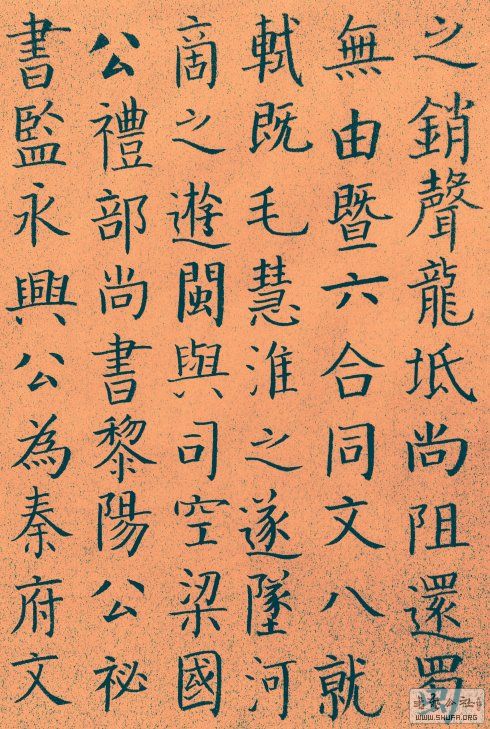 之銷聲龍坻尚阻還蜀
無由暨六合同文八就
軾既毛慧淮之遂墜河
啇之遊閩與司空梁國
公禮部尚書黎陽公祕
書監永興公為秦府文
WWW.SHUFA.ORG